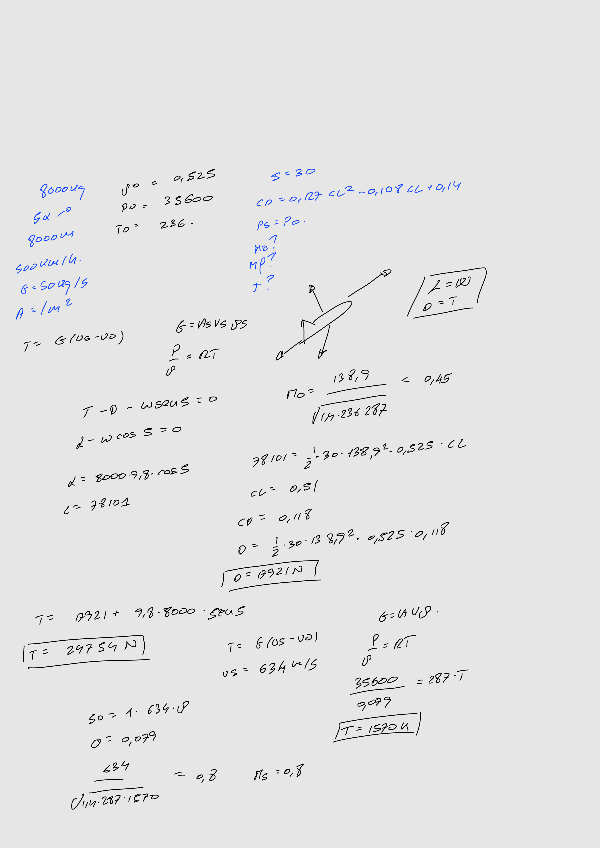 8000kg
ρo = 0,525
S = 30
5α ↗º
Po = 35600
CD = 0,127 CL² - 0,108 CL + 0,14
8000m
To = 236.
Ps = Po.
500km/h.
Mo?
G = 50kg/s
Mp?
A = 1m²
T?
T = G(vs - vo)
G = As vs ρs
P/ρ = RT
L = W
D = T
T - D - W sen 5 = 0
L - W cos 5 = 0
Mo = 138,9 / √1,4·236·287 = 0,45
L = 8000·9,8·cos 5
L = 78101
78101 = 1/2·30·138,9²·0,525·CL
CL = 0,51
CD = 0,118
D = 1/2·30·138,9²·0,525·0,118
T = 17921 + 9,8·8000·sen 5
T = 24754 N
T = G(vs - vo)
vs = 634 m/s
G = A v ρ.
P/ρ = RT
35600 / 0,079 = 287·T
T = 1570 K
50 = 1·634·ρ
ρ = 0,079
634 / √1,4·287·1570 = 0,8
Ms = 0,8